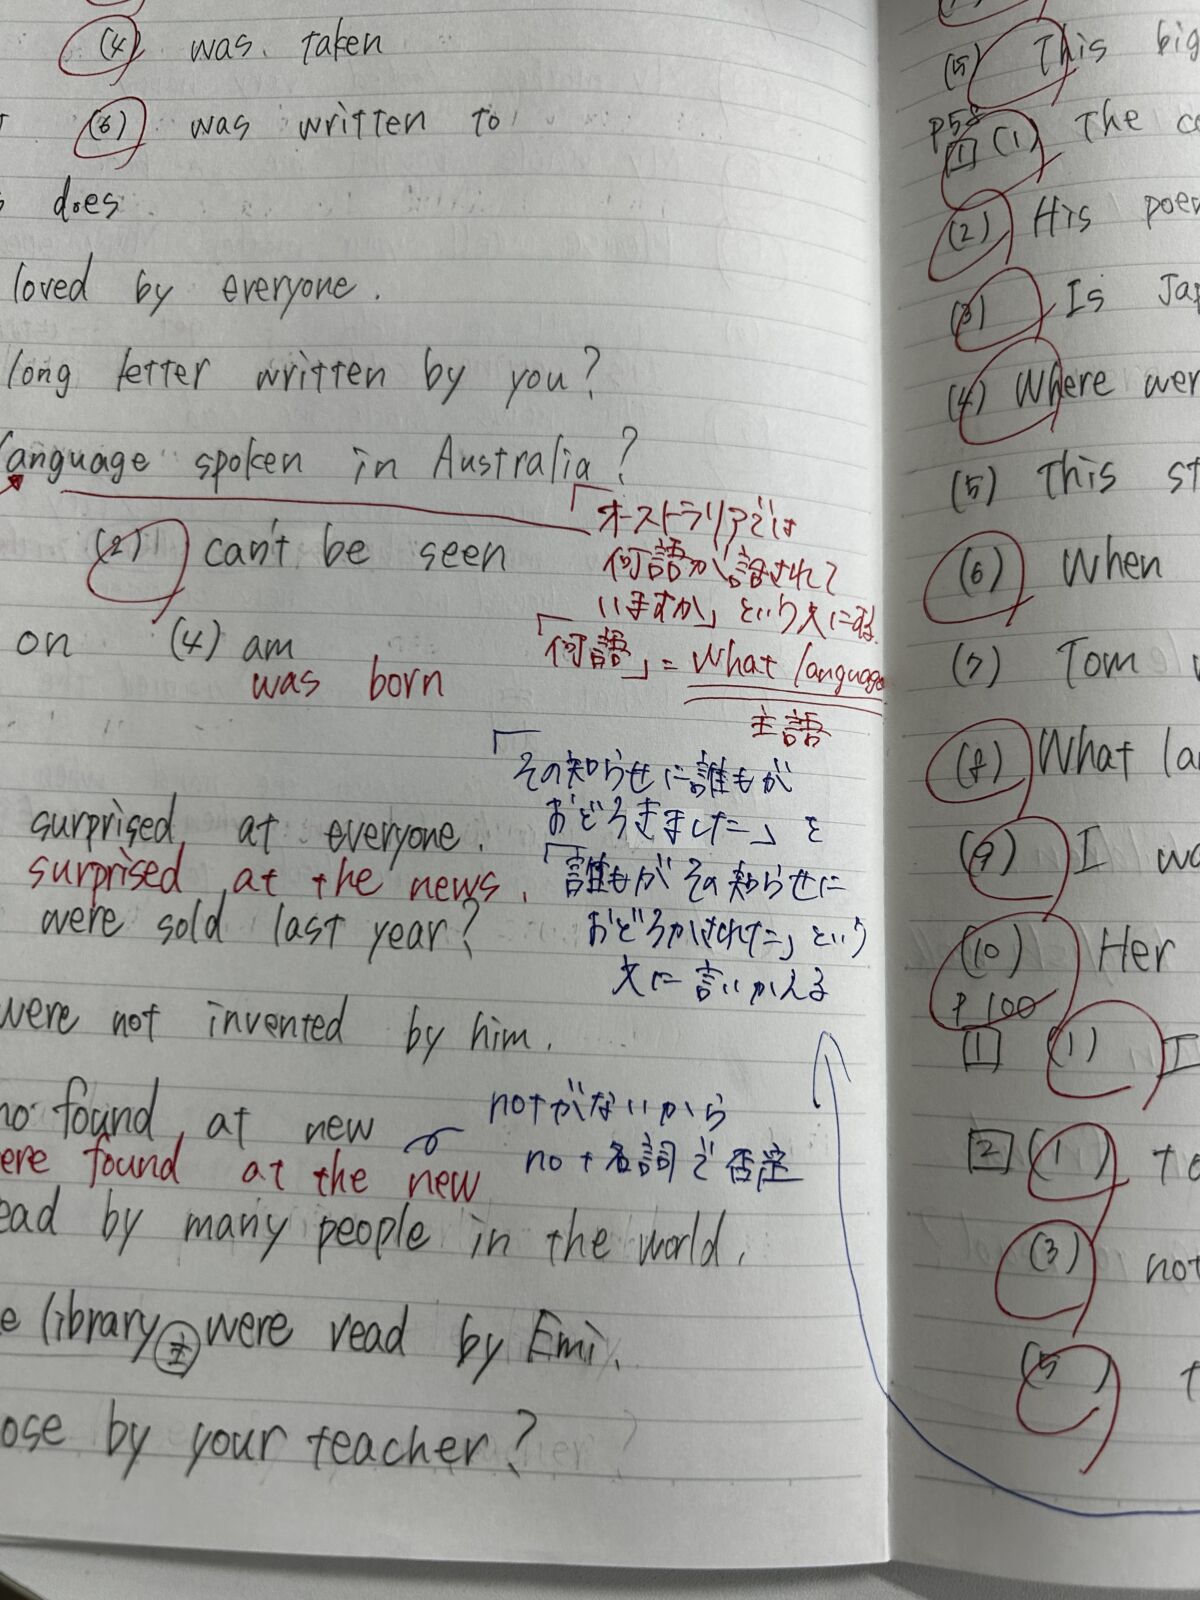 (4) was taken
(6) was written to
does
loved by everyone.
long letter written by you?
language spoken in Australia?
「オーストラリアでは
(2) can't be seen
何語が話されて
いますか」という文にする
on (4) am
「何語」= What language
was born
主語
「その知らせに誰もが
おどろきました」を
surprised at everyone.
surprised at the news.
「誰もがその知らせに
were sold last year?
おどろかされた」という
文に言いかえる
were not invented by him.
no found at new
notがないから
ere found at the new
no+名詞で否定
ead by many people in the world.
e library 主 were read by Emi.
ose by your teacher?
(5) This big
P58
1 (1) The co
(2) His poem
(3) Is Jap
(4) Where wer
(5) This st
(6) When
(7) Tom
(8) What la
(9) I wa
(10) Her
P100
1 (1) I
2 (1) to
(3) not
(5) t